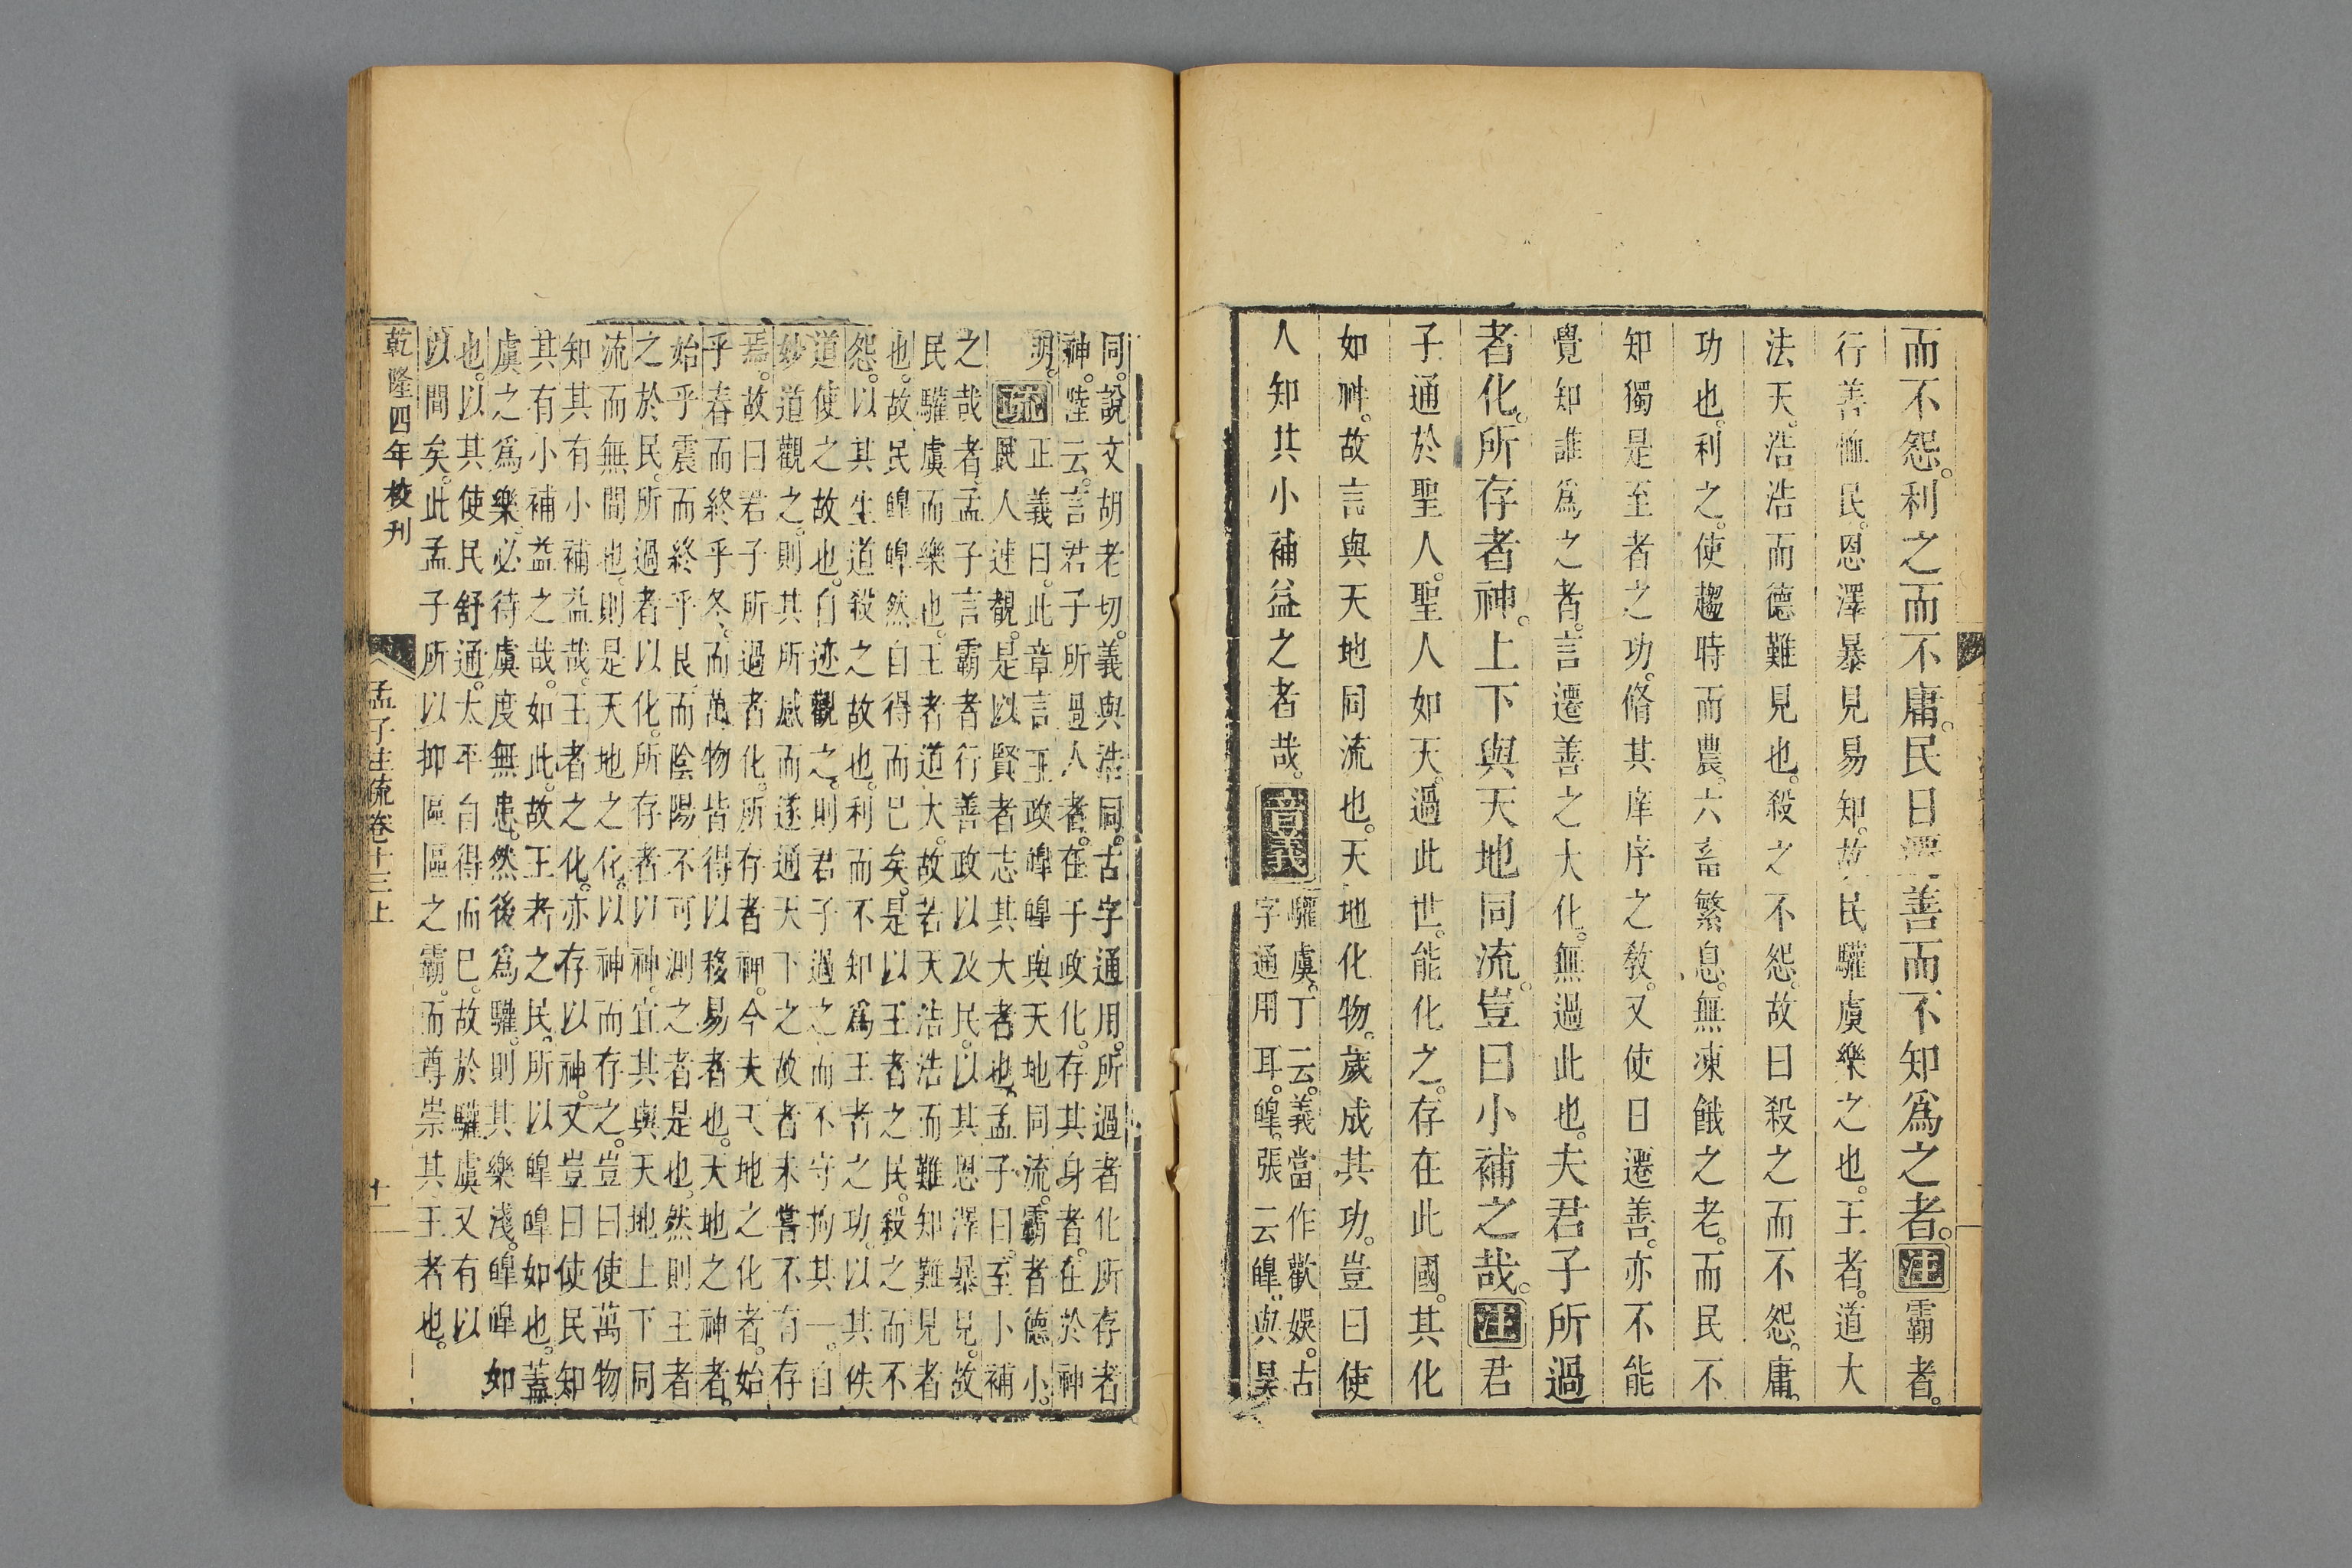 而不怨。利之而不庸。民日遷善而不知爲之者。注霸者。
行善恤民。恩澤暴見易知。故民驩虞樂之也。王者。道大
法天。浩浩而德難見也。殺之不怨。故曰殺之而不怨。庸。
功也。利之。使趨時而農。六畜繁息。無凍餓之老。而民不
知獨是至者之功。脩其庠序之教。又使日遷善。亦不能
覺知誰爲之者。言遷善之大化。無過此也。夫君子所過
者化。所存者神。上下與天地同流。豈曰小補之哉。注君
子通於聖人。聖人如天。過此世。能化之。存在此國。其化
如神。故言與天地同流也。天地化物。歲成其功。豈曰使
人知其小補益之者哉。音義
驩虞。丁云。義當作歡娛。古
字通用耳。皥。張云皥。與昊
同。說文胡老切。義與浩同。古字通用。所過者化所存者
神。陸云。言君子所過人者。在于政化。存其身者。在於神
明。
疏
正義曰。此章言王政皥皥與天地同流。霸者德小。
民人速覩。是以賢者志其大者也。孟子曰。至小補
之哉者。孟子言霸者行善政以及民。以其恩澤暴見。故
民驩虞而樂也。王者道大。故若天浩浩而難知難見者
也。故民皥皥然自得而已矣。是以王者之民。殺之而不
怨。以其生道殺之故也。利而不知爲王者之功。以其佚
道使之故也。自迹觀之。則君子過之而不守拘其一。自
妙道觀之。則其所感而遂通天下之故者未嘗不有存
焉。故曰君子所過者化。所存者神。今夫天地之化者。始
乎春而終乎冬。而萬物皆得以移易者也。天地之神者。
始乎震而終乎艮。而陰陽不可測之者是也。然則王者
之於民。所過者以化。所存者以神。宜其與天地上下同
流而無間也。則是天地之化。以神而存之。豈曰使萬物
知其有小補益哉。王者之化。亦存以神。又豈曰使民知
其有小補益之哉。如此。故王者之民。所以皥皥如也。蓋
虞之爲樂。必待虞度無患。然後爲驩。則其樂淺。皥皥如
也。以其使民舒通。太平自得而已。故於驩虞又有以
以間矣。此孟子所以抑區區之霸。而尊崇其王者也。
乾隆四年校刊
孟子注疏卷十三上
十一